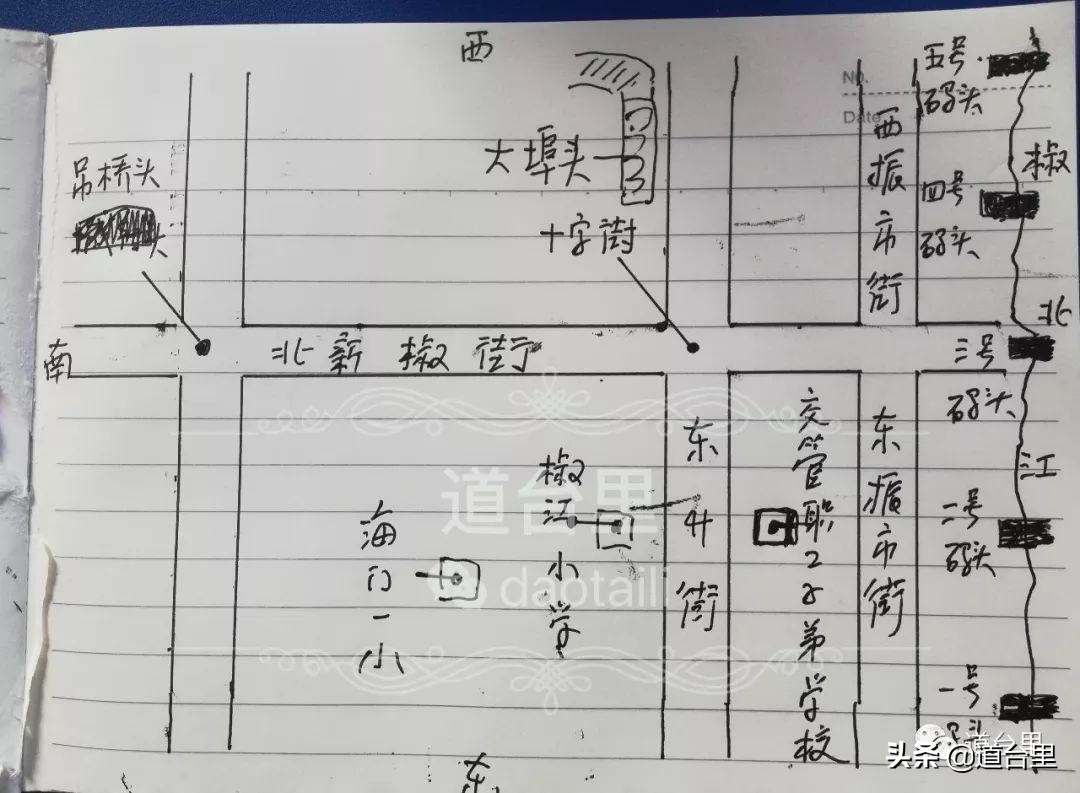 西
No.
Date
五号
码头
西振市街
椒
吊桥头
头
大埠头
十字街
四号
码头
北
南
北新椒街
三号
码头
交管职工子弟学校
东升街
东振市街
椒江小学
海门一小
江
二号
码头
一号
头
东
道台里
daotaili
道台里
头条 @道台里